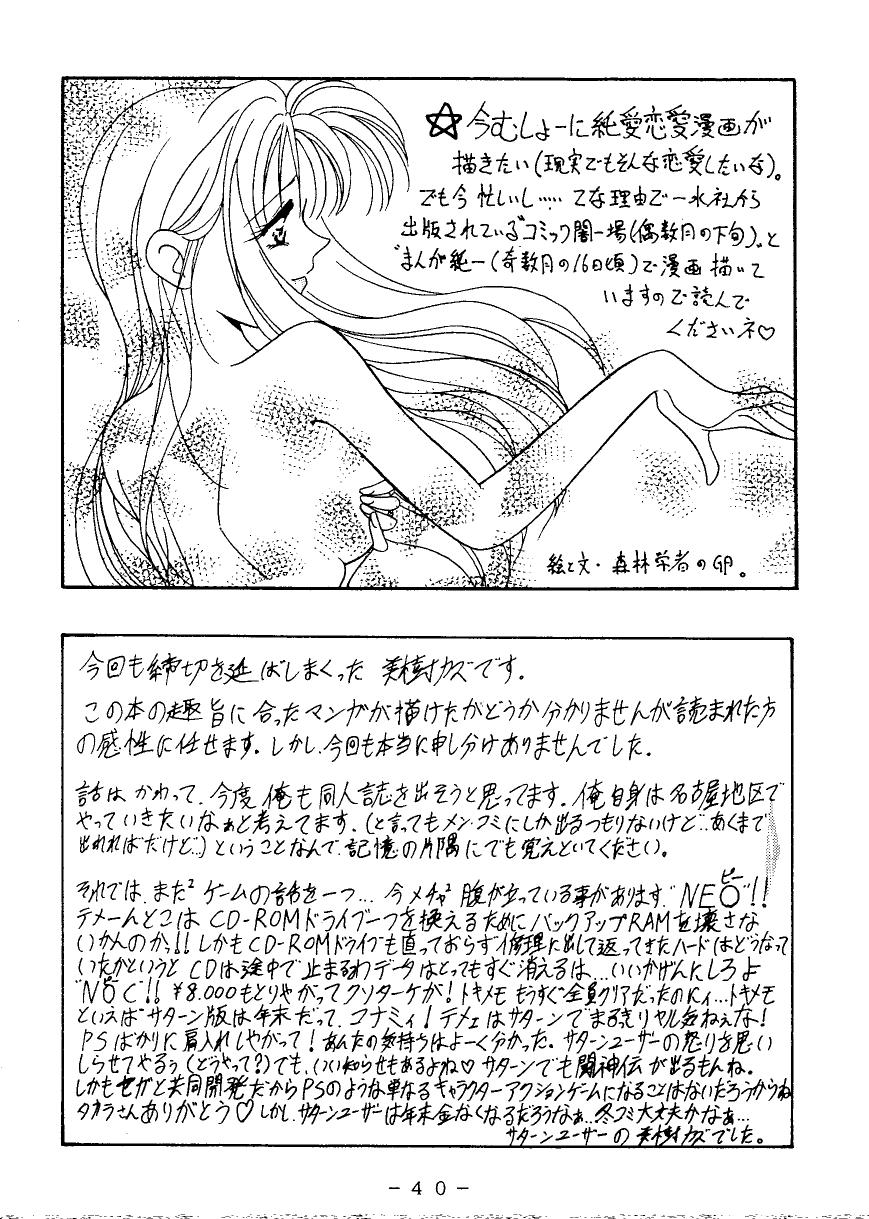 ☆今むしょーに純愛恋愛漫画が
描きたい(現実でもそんな恋愛したいな)。
でも今忙しいし‥‥‥てな理由で一水社から
出版されている"コミック闇一場(偶数月の下旬)。と
"まんが純一(奇数月の16日頃)で漫画描いて
いますので読んで
くださいネ♡
絵と文・森林学者のGP。
今回も締切を延ばしまくった 美樹カズです。
この本の趣旨に合ったマンガが描けたかどうか分かりませんが読まれた方
の感性に任せます。しかし、今回も本当に申し分けありませんでした。
話はかわって、今度俺も同人誌を出そうと思ってます。俺自身は名古屋地区で
やっていきたいなぁと考えてます。(と言ってもメン・コミにしか出るつもりないけど‥あくまで
出れればだけど‥)ということなんで、記憶の片隅にでも覚えといてください。
それでは、また²ゲームの話を一つ… 今メチャ²腹が立っている事があります"NEO"!!
ピー
テメーんとこはCD-ROMドライブ一つを換えるためにバックアップRAMを壊さな
いかんのか!!しかもCD-ROMドライブも直っておらず修理に出して返ってきたハードはどうなって
いたかというとCDは途中で止まるわデータはとってもすぐ消えるは…いいかげんにしろよ
ピー
"NOC"!!¥8.000もとりやがってクソターケが!トキメモもうすぐ全員クリアだったのにィ…トキメモ
といえばサターン版は年末だって、コナミィ!テメェはサターンでまるきりヤル気ねぇな!
PSばかりに肩入れしやがって!あんたの気持ちはよーく分かった。サターンユーザーの怒りを思い
しらせてやるぅ(どうやって?)でも、いい知らせもあるよね♡サターンでも闘神伝が出るもんね。
しかもセガと共同開発だからPSのような単なるキャラクターアクションゲームになることはないだろうからね
タカラさんありがとう♡しかし、サターンユーザーは年末金なくなるだろうなぁ…冬コミ大丈夫かなぁ…
サターンユーザーの美樹カズでした。
- 40 -